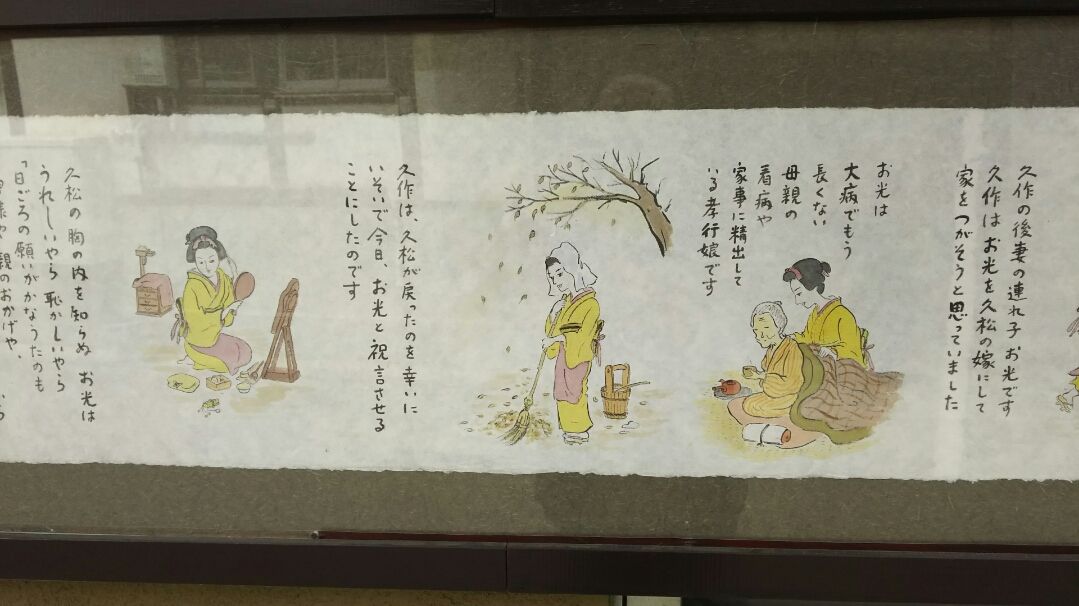 久作の後妻の連れ子 お光です
久作は お光を久松の嫁にして
家をつがそうと思っていました
お光は
大病でもう
長くない
母親の
看病や
家事に精出して
いる孝行娘です
久作は、久松が戻ったのを幸いに
いそいで今日、お光と祝言させる
ことにしたのです
久松の胸の内を知らぬ お光は
うれしいやら 恥かしいやら
「日ごろの願いがかなうたのも
親のおかげや、